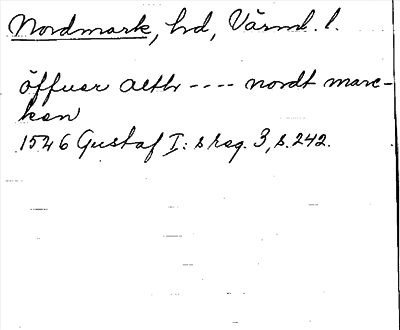 Nordmark, hd, Värml. l.
öffuer alth ---- nordt mare-
ken
1546 Gustaf I: s reg. 3, s. 242.